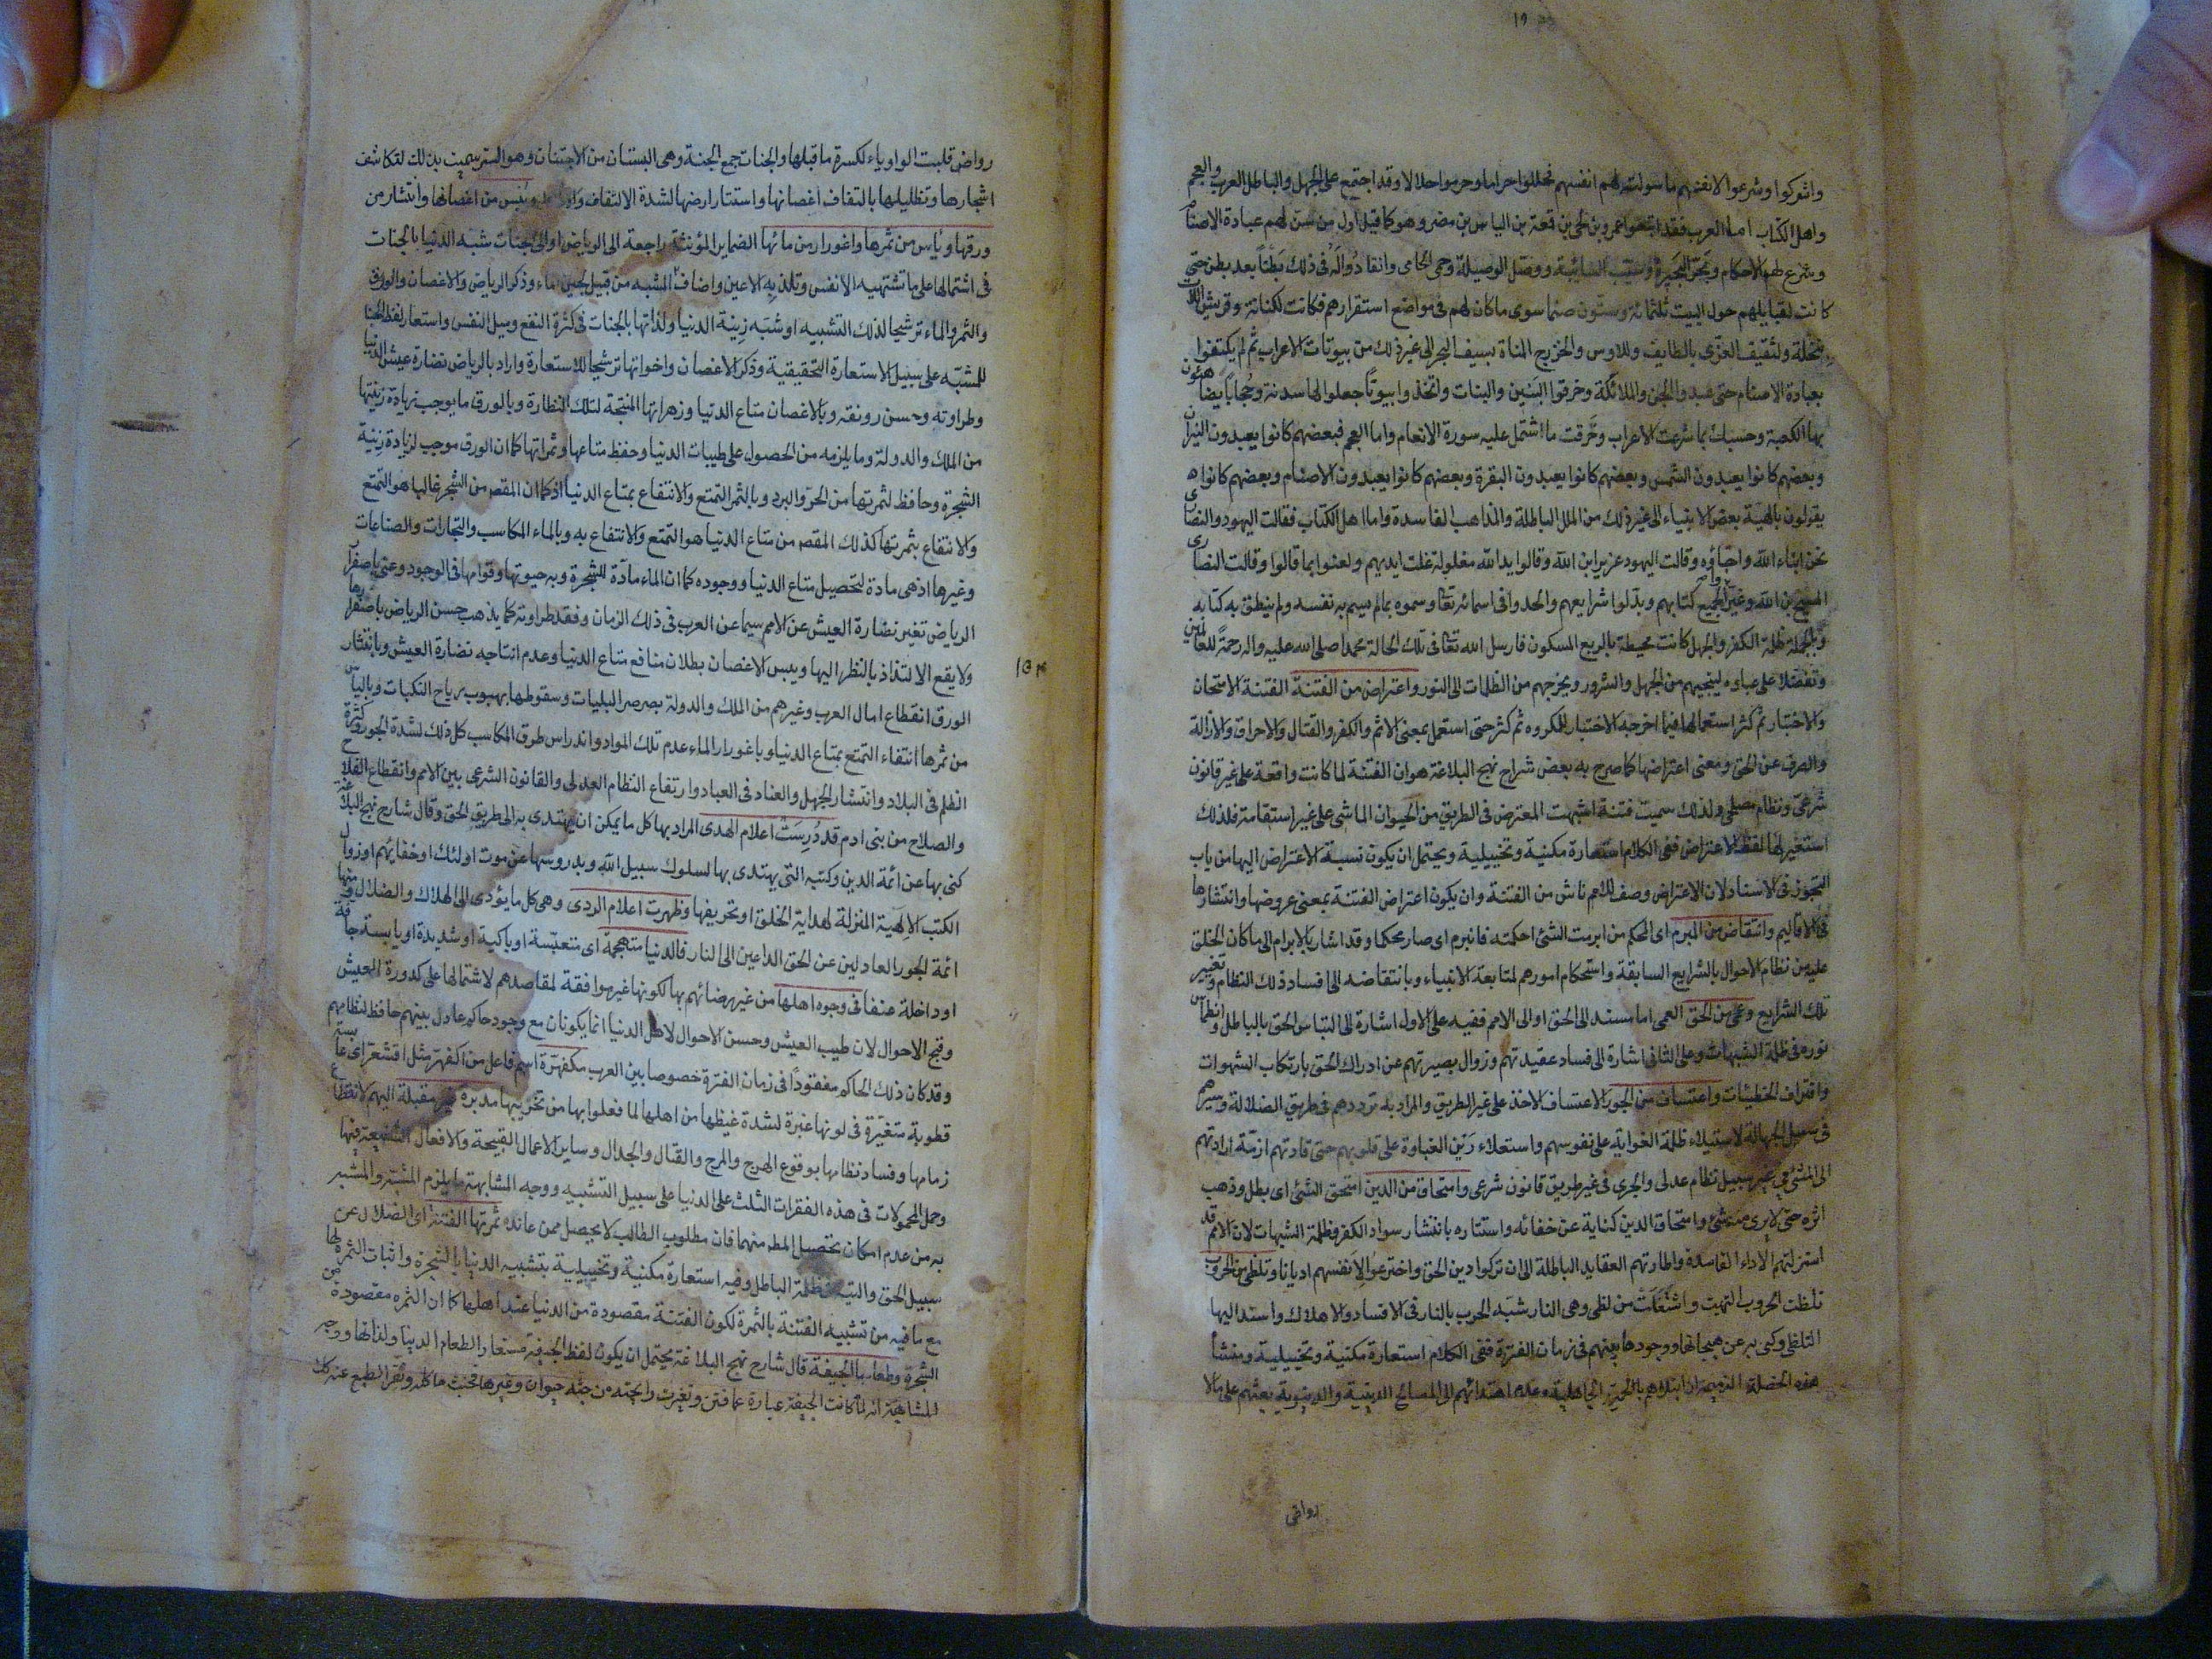 ١٩
واشركوا وشرعوا لانفسهم ما سولت لهم انفسهم فحللوا حراما وحرموا حلالا وقد اجتمع على الجهل والباطل العرب والعجم
واهل الكتاب اما العرب فقد اتبعوا عمرو بن لحي بن قمعة بن الياس بن مضر وهو كما قيل اول من سن لهم عبادة الاصنام
وشرع لهم الاحكام وبحر البحيرة وسيب السائبة ووصل الوصيلة وحمى الحامي وانقادوا له في ذلك بطنا بعد بطن حتى
كانت لقبايلهم حول البيت ثلثمائة وستون صنما سوى ما كان لهم في مواضع استقرارهم فكانت لكنانة وقريش اللات
بنخلة ولثقيف العزى بالطايف وللاوس والخزرج المناة بسيف البحر الى غير ذلك من بيوتات الاعراب ثم لم يكتفوا
بعبادة الاصنام حتى عبدوا الجن والملائكة وخرقوا البنين والبنات واتخذوا بيوتا جعلوا لها سدنة وحجابا يضاهئون
بها الكعبة وحسبك بما شرعت الاعراب وخرقت ما اشتمل عليه سورة الانعام واما العجم فبعضهم كانوا يعبدون النيران
وبعضهم كانوا يعبدون الشمس وبعضهم كانوا يعبدون البقرة وبعضهم كانوا يعبدون الاصنام وبعضهم كانوا
يقولون بالهية بعض الانبياء الى غير ذلك من الملل الباطلة والمذاهب الفاسدة واما اهل الكتاب فقالت اليهود والنصارى
نحن ابناء الله واحباؤه وقالت اليهود عزير ابن الله وقالوا يد الله مغلولة غلت ايديهم ولعنوا بما قالوا وقالت النصارى
المسيح بن الله وغير الجميع كتابهم وبدلوا شرايعهم والحدوا في اسمائه تعالى وسموه بما لم يسم به نفسه ولم ينطق به كتابه
وبالجملة ظلمة الكفر والجهل كانت محيطة بالربع المسكون فارسل الله تعالى في تلك الحالة محمدا صلى الله عليه واله رحمة للعالمين
وتفضلا على عباده لينجيهم من الجهل والشرور ويخرجهم من الظلمات الى النور واعتراض من الفتنة الفتنة الامتحان
والاختبار ثم كثر استعمالها فيما اخرجه الاختبار للمكروه ثم كثر حتى استعمل بمعنى الاثم والكفر والقتال والاحراق والازالة
والصرف عن الحق ومعنى اعتراضها كما صرح به بعض شراح نهج البلاغة هو ان الفتنة لما كانت واقعة على غير قانون
شرعي ونظام مصلحي ولذلك سميت فتنة اشبهت المعترض في الطريق من الحيوان الماشي على غير استقامة فلذلك
استعير لها لفظ الاعتراض ففي الكلام استعارة مكنية وتخييلية ويحتمل ان يكون نسبة الاعتراض اليها من باب
التجوز في الاسناد لان الاعتراض وصف للامم ناش من الفتنة وان يكون اعتراض الفتنة بمعنى عروضها وانتشارها
في الاقاليم وانتقاض من المبرم اى الحكم من ابرمت الشئ احكمته فانبرم اى صار محكما وقد اشار بالابرام الى ما كان الخلق
عليه من نظام الاحوال بالشرايع السابقة واستحكام امورهم لمتابعة الانبياء وبانتقاضه الى افساد ذلك النظام وتغيير
تلك الشرايع وعمى من الحق العمى اما مسند الى الحق او الى الامم ففيه على الاول اشارة الى التباس الحق بالباطل وانطماس
نوره في ظلمة الشبهات وعلى الثاني اشارة الى فساد عقيدتهم وزوال بصيرتهم عن ادراك الحق بارتكاب الشهوات
واقتراف الخطيئات واعتساف من الجور الاعتساف الاخذ على غير الطريق والمراد به ترددهم في طريق الضلالة وسيرهم
في سبيل الجهالة لاستيلاء ظلمة الغواية على نفوسهم واستعلاء رين الغباوة على قلوبهم حتى قادتهم ازمة ارادتهم
الى المشي في غير سبيل نظام عدلى والجرى في غير طريق قانون شرعى وامتحاق من الدين امتحق الشئ اى بطل وذهب
اثره حتى لا يرى منه شئ وامتحاق الدين كناية عن خفائه واستتاره بانتشار سواد الكفر وظلمة الشبهات لان الامم قد
استزلتهم الاراء الفاسدة واطارتهم العقايد الباطلة الى ان تركوا دين الحق واخترعوا لانفسهم اديانا وتلظى من الحروب
تلظت الحروب التهبت واشتعلت من لظى وهي النار شبه الحرب بالنار في الافساد والاهلاك واسند اليها
التلظى وكنى به عن هيجانها ووجودها بينهم في زمان الفترة ففي الكلام استعارة مكنية وتخييلية ومنشأ
هذه الخصلة الذميمة ابتلاهم بالحمية الجاهلية وعدم اهتدائهم الى المصالح الدينية والدنيوية بعثهم على
رواض
رواض قلبت الواو ياء لكسرة ما قبلها والجنات جمع الجنة وهى البستان من الاجتنان وهو الستر سميت بذلك لتكاثف
اشجارها وتظليلها بالتفاف اغصانها واستتار ارضها لشدة الالتفاف ويبس من اغصانها وانتشار من
ورقها وياس من ثمرها واغورار من مائها الضماير المؤنثة راجعة الى الرياض او الى الجنات شبه الدنيا بالجنات
في اشتمالها على ما تشتهيه الانفس وتلذ به الاعين واضاف المشبه من قبيل لجين الماء وذكر الرياض والاغصان والورق
والثمر والماء ترشيحا لذلك التشبيه او شبه زينة الدنيا ولذاتها بالجنات في كثرة النفع وميل النفس واستعار لفظ الجنات
للمشبه على سبيل الاستعارة التحقيقية وذكر الاغصان واخواتها ترشيحا للاستعارة واراد بالرياض نضارة عيش الدنيا
وطراوته وحسن رونقه وبالاغصان متاع الدنيا وزهراتها المنتجة لتلك النظارة وبالورق ما يوجب زيادة زينتها
من الملك والدولة وما يلزمه من الحصول على طيبات الدنيا وحفظ متاعها وثمراتها كما ان الورق موجب لزيادة زينة
الشجرة وحافظ لثمرتها من الحر والبرد وبالثمر التمتع والانتفاع بمتاع الدنيا اذ كما ان المقصم من الشجر غالبا هو التمتع
والانتفاع بثمرتها كذلك المقصم من متاع الدنيا هو التمتع والانتفاع به وبالماء المكاسب والتجارات والصناعات
وغيرها اذ هى مادة لتحصيل متاع الدنيا ووجوده كما ان الماء مادة للشجرة وبه حيوتها وقوامها في الوجود وعنى باصفرار
الرياض تغير نضارة العيش عن الامم سيما عن العرب في ذلك الزمان وفقد طراوته كما يذهب حسن الرياض باصفرارها
ولا يقع الالتذاذ بالنظر اليها ويبس الاغصان بطلان منافع متاع الدنيا وعدم انتاجه نضارة العيش وبانتشار
الورق انقطاع امال العرب وغيرهم من الملك والدولة بصرصر البليات وسقوطها بهبوب رياح النكبات وبالياس
من ثمرها انتفاء التمتع بمتاع الدنيا وباغورار الماء عدم تلك المواد واندراس طرق المكاسب كل ذلك لشدة الجور وكثرة
الظلم في البلاد وانتشار الجهل والعناد في العباد وارتفاع النظام العدلى والقانون الشرعى بين الامم وانقطاع الفلاح
والصلاح من بنى ادم قد درست اعلام الهدى المراد بها كل ما يمكن ان يهتدى به الى طريق الحق وقال شارح نهج البلاغة
كنى بها عن ائمة الدين وكتبه التى يهتدى بها لسلوك سبيل الله وبدروسها عن موت اولئك او خفائهم او زوال
الكتب الالهية المنزلة لهداية الخلق او تحريفها وظهرت اعلام الردى وهى كل ما يؤدى الى الهلاك والضلال ومنها
ائمة الجور العادلين عن الحق الداعين الى النار فالدنيا متهجمة اى متعبسة او باكية او شديدة او يابسة جافة
او داخلة عنفا في وجوه اهلها من غير رضائهم بها لكونها غير موافقة لمقاصدهم لاشتمالها على كدورة العيش
وقبح الاحوال لان طيب العيش وحسن الاحوال لاهل الدنيا انما يكونان مع وجود حاكم عادل بينهم حافظ لنظامهم
وقد كان ذلك الحاكم مفقودا في زمان الفترة خصوصا بين العرب مكفهرة اسم فاعل من اكفهر مثل اقشعر اى عابسة
قطوبة متغيرة في لونها غبرة لشدة غيظها من اهلها لما فعلوا بها من تخريبها مدبرة غير مقبلة اليهم لانقطاع
زمامها وفساد نظامها بوقوع الهرج والمرج والقتال والجدال وساير الاعمال القبيحة والافعال الشنيعة فيها
وحمل المحمولات في هذه الفقرات الثلث على الدنيا على سبيل التشبيه ووجه المشابهة ما يلزم المشبه والمشبه
به من عدم امكان تحصيل المطم منهما فان مطلوب الطالب لا يحصل ممن عانده ثمرتها الفتنة اى الضلال عن
سبيل الحق والتيه في ظلمة الباطل وفيه استعارة مكنية وتخييلية بتشبيه الدنيا بالشجرة واثبات الثمرة لها
مع ما فيه من تشبيه الفتنة بالثمرة لكون الفتنة مقصودة من الدنيا عند اهلها كما ان الثمره مقصودة من
الشجرة وطعامها الجيفة قال شارح نهج البلاغة يحتمل ان يكون لفظ الجيفة مستعار الطعام الدنيا ولذاتها ووجه
المشابهة انه لما كانت الجيفة عبارة عما فتن وتغيرت رايحته من جثة حيوان وغيرها فخبث ماكله ونفر الطبع عنه كذلك